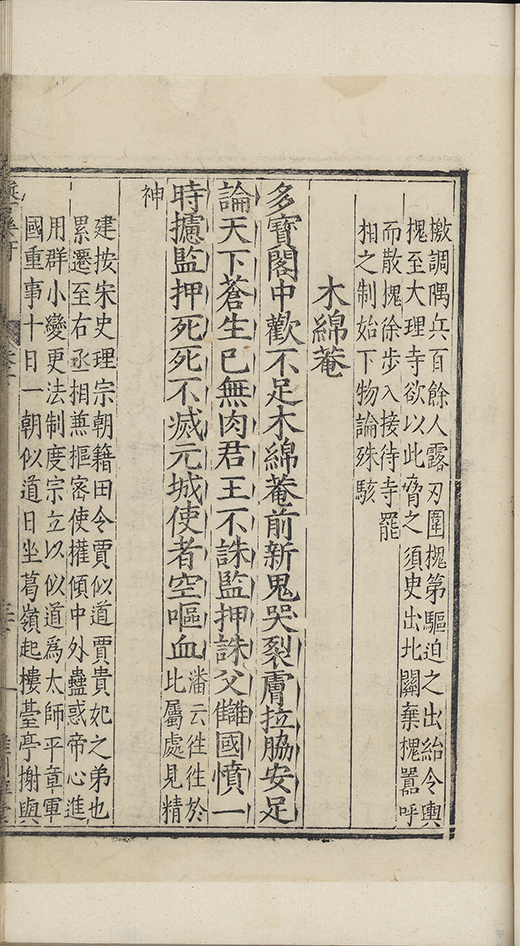 檄調隅兵百餘人露刃圍槐第驅迫之出紿令輿
槐至大理寺欲以此脅之須臾出北關棄槐嚻呼
而散槐徐步入接待寺罷
相之制始下物論殊駭
木綿菴
多寶閣中歡不足木綿菴前新鬼哭裂膚拉脇安足
論天下蒼生已無肉君王不誅監押誅父讎國憤一
時攄監押死死不滅元城使者空嘔血
潘云徃徃於
比屬處見精
神
建按宋史理宗朝籍田令賈似道賈貴妃之弟也
累遷至右丞相兼樞密使權傾中外蠱惑帝心進
用群小變更法制度宗立以似道爲太師平章軍
國重事十日一朝似道日坐葛嶺起樓臺亭榭與